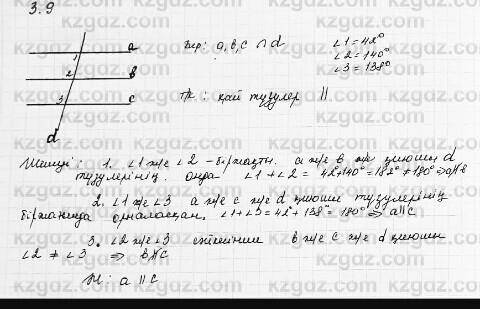 3.9
a
1
∠1 = 42°
бер: a, b, c ∩ d
2
b
∠2 = 140°
∠3 = 138°
3
c
Т/к: қай түзулер ||
d
Шешуі: 1. ∠1 және ∠2 – біржақты. a және b және қиюшы d
түзулерінің. онда ∠1 + ∠2 = 42 + 140° = 182° ≠ 180° ⇒ a∦b
2. ∠1 және ∠3 a және c және d қиюшы түзулерінің
бір жағында орналасқан. ∠1 + ∠3 = 42° + 138° = 180° ⇒ a || c
3. ∠2 және ∠3 b және c және d қиюшы
∠2 ≠ ∠3 ⇒ b∦c
Ж: a || c
kzgaz.com